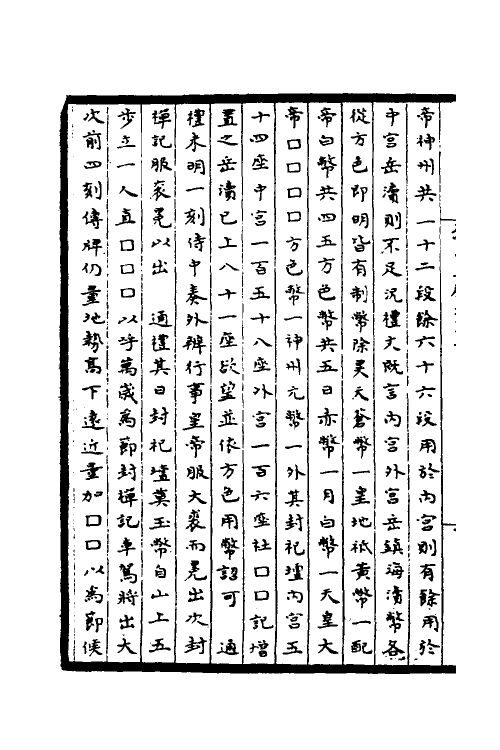 帝神州共一十二段餘六十六段用於內宮則有餘用於
中宮岳瀆則不足況禮文既言內宮外宮岳鎮海瀆幣各
從方色即明皆有制幣除昊天蒼幣一皇地祇黃幣一配
帝白幣共四五方色幣共五日赤幣一月白幣一天皇大
帝口口口口方色幣一神州亢幣一外其封祀壇內宮五
十四座中宮一百五十八座外宮一百六座社口口記增
置之岳瀆已上八十一座欲望並依方色用幣詔可　通
禮未明一刻侍中奏外辦行事皇帝服大裘而冕出次封
禪記服袞冕以出　通禮其日封祀壇奠玉幣自山上五
步立一人直口口口以呼萬歲為節封禪記車駕將出大
次前四刻傳牌仍量地勢高下遠近量加口口以為節候